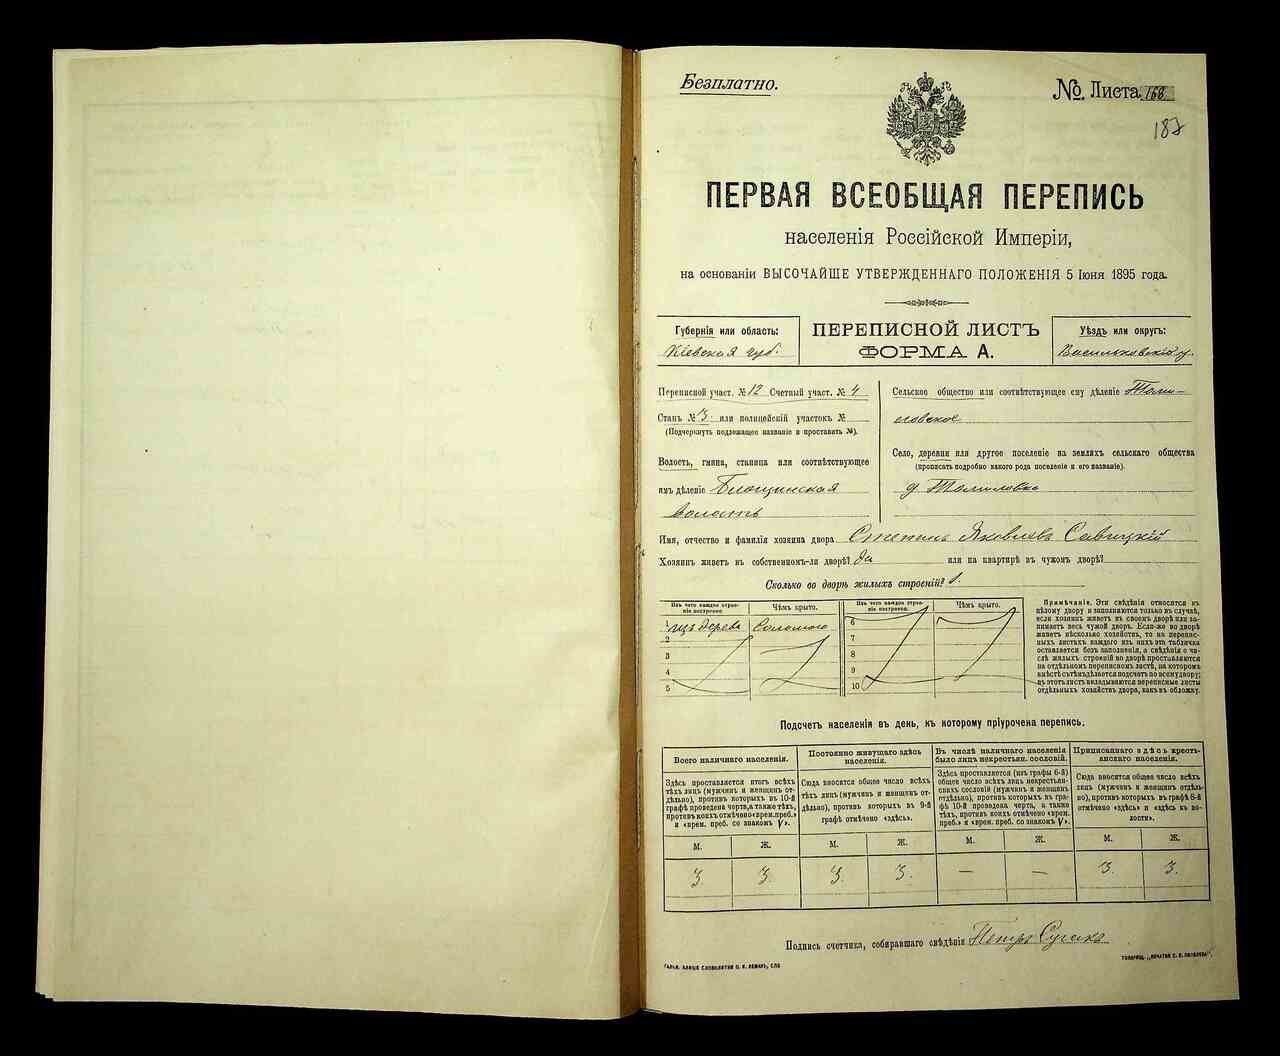 Безплатно.
№ Листа 168
187
ПЕРВАЯ ВСЕОБЩАЯ ПЕРЕПИСЬ
населенія Россійской Имперіи,
на основаніи ВЫСОЧАЙШЕ УТВЕРЖДЕННАГО ПОЛОЖЕНІЯ 5 Іюня 1895 года.
Губернія или область:
Кіевская губ.
ПЕРЕПИСНОЙ ЛИСТЪ
ФОРМА А.
Уѣздъ или округъ:
Васильковскій у.
Переписной участ. № 12 Счетный участ. № 4
Станъ № 3. или полицейскій участокъ №
(Подчеркнуть подлежащее названіе и проставить №).
Волость, гмина, станица или соотвѣтствующее
имъ дѣленіе Блощинская
волость
Сельское общество или соотвѣтствующее ему дѣленіе Томи-
ловское
Село, деревня или другое поселеніе на земляхъ сельскаго общества
(прописать подробно какого рода поселеніе и его названіе).
д Томиловка
Имя, отчество и фамилія хозяина двора Степанъ Яковлевъ Савицкій
Хозяинъ живетъ въ собственномъ-ли дворѣ? да или на квартирѣ въ чужомъ дворѣ?
Сколько во дворѣ жилыхъ строеній? 1.
Изъ чего каждое строе-
ніе построено.
Чѣмъ крыто.
Изъ чего каждое строе-
ніе построено.
Чѣмъ крыто.
1 изъ дерева Соломою
2
3
4
5
6
7
8
9
10
Примѣчаніе. Эти свѣдѣнія относятся къ
цѣлому двору и заполняются только въ случаѣ,
если хозяинъ живетъ въ своемъ дворѣ или за-
нимаетъ весь чужой дворъ. Если-же во дворѣ
живетъ нѣсколько хозяйствъ, то на перепис-
ныхъ листахъ каждаго изъ нихъ эта табличка
оставляется безъ заполненія, а свѣдѣнія о чи-
слѣ жилыхъ строеній во дворѣ проставляются
на отдѣльномъ переписномъ листѣ, на которомъ
вмѣстѣ съ тѣмъ дѣлается подсчетъ по всему двору;
въ этотъ листъ вкладываются переписные листы
отдѣльныхъ хозяйствъ двора, какъ въ обложку.
Подсчетъ населенія въ день, къ которому пріурочена перепись.
Всего наличнаго населенія.
Здѣсь проставляется итогъ всѣхъ
тѣхъ лицъ (мужчинъ и женщинъ от-
дѣльно), противъ которыхъ въ 10-й
графѣ проведена черта, а также тѣхъ,
противъ коихъ отмѣчено «врем. преб.»
и «врем. преб. со знакомъ V».
Постоянно живущаго здѣсь
населенія.
Сюда вносится общее число всѣхъ
тѣхъ лицъ (мужчинъ и женщинъ от-
дѣльно), противъ которыхъ въ 9-й
графѣ отмѣчено «здѣсь».
Въ числѣ наличнаго населенія
было лицъ некрестьян. сословій.
Здѣсь проставляется (изъ графы 6-й)
общее число всѣхъ лицъ некрестьян-
скихъ сословій (мужчинъ и женщинъ
отдѣльно), противъ коихъ въ гра-
фѣ 10-й проведена черта, а также
тѣхъ, противъ коихъ отмѣчено «врем.
преб.» и «врем. преб. со знакомъ V».
Приписаннаго здѣсь кресть-
янскаго населенія.
Сюда вносится общее число всѣхъ
лицъ (мужчинъ и женщинъ отдѣль-
но), противъ которыхъ въ графѣ 8-й
отмѣчено «здѣсь» и «здѣсь къ во-
лости».
М. Ж. М. Ж. М. Ж. М. Ж.
3. 3. 3. 3. — — 3. 3.
Подпись счетчика, собиравшаго свѣдѣнія Петръ